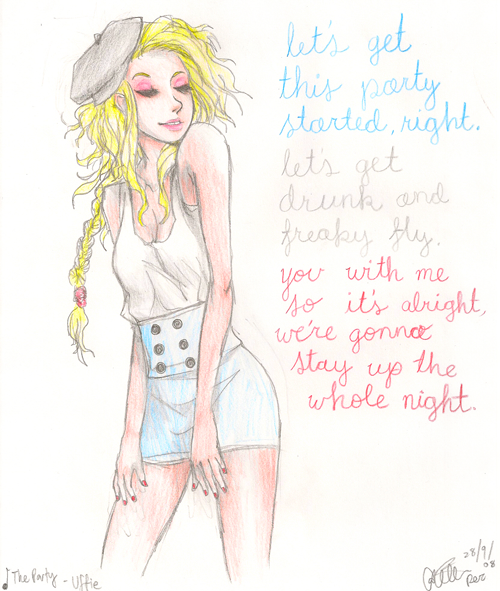 let's get
this party
started, right.
let's get
drunk and
freaky fly.
you with me
so it's alright,
we're gonna
stay up the
whole night.
♪ The Party - Uffie
28/9/08